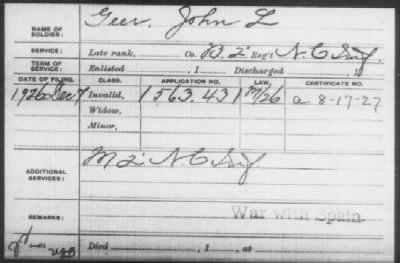 NAME OF SOLDIER: Geer, John L
SERVICE: Late rank, Co. D. 2" Reg't N.C. Inf.
TERM OF SERVICE: Enlisted , 1 Discharged , 1
DATE OF FILING. CLASS. APPLICATION NO. LAW. CERTIFICATE NO.
1926 Dec 7 Invalid, 1563.431 M/26 a 8-17-27
Widow,
Minor,
ADDITIONAL SERVICES: M 2" N.C. Inf
REMARKS: War with Spain.
Died , 1 , at